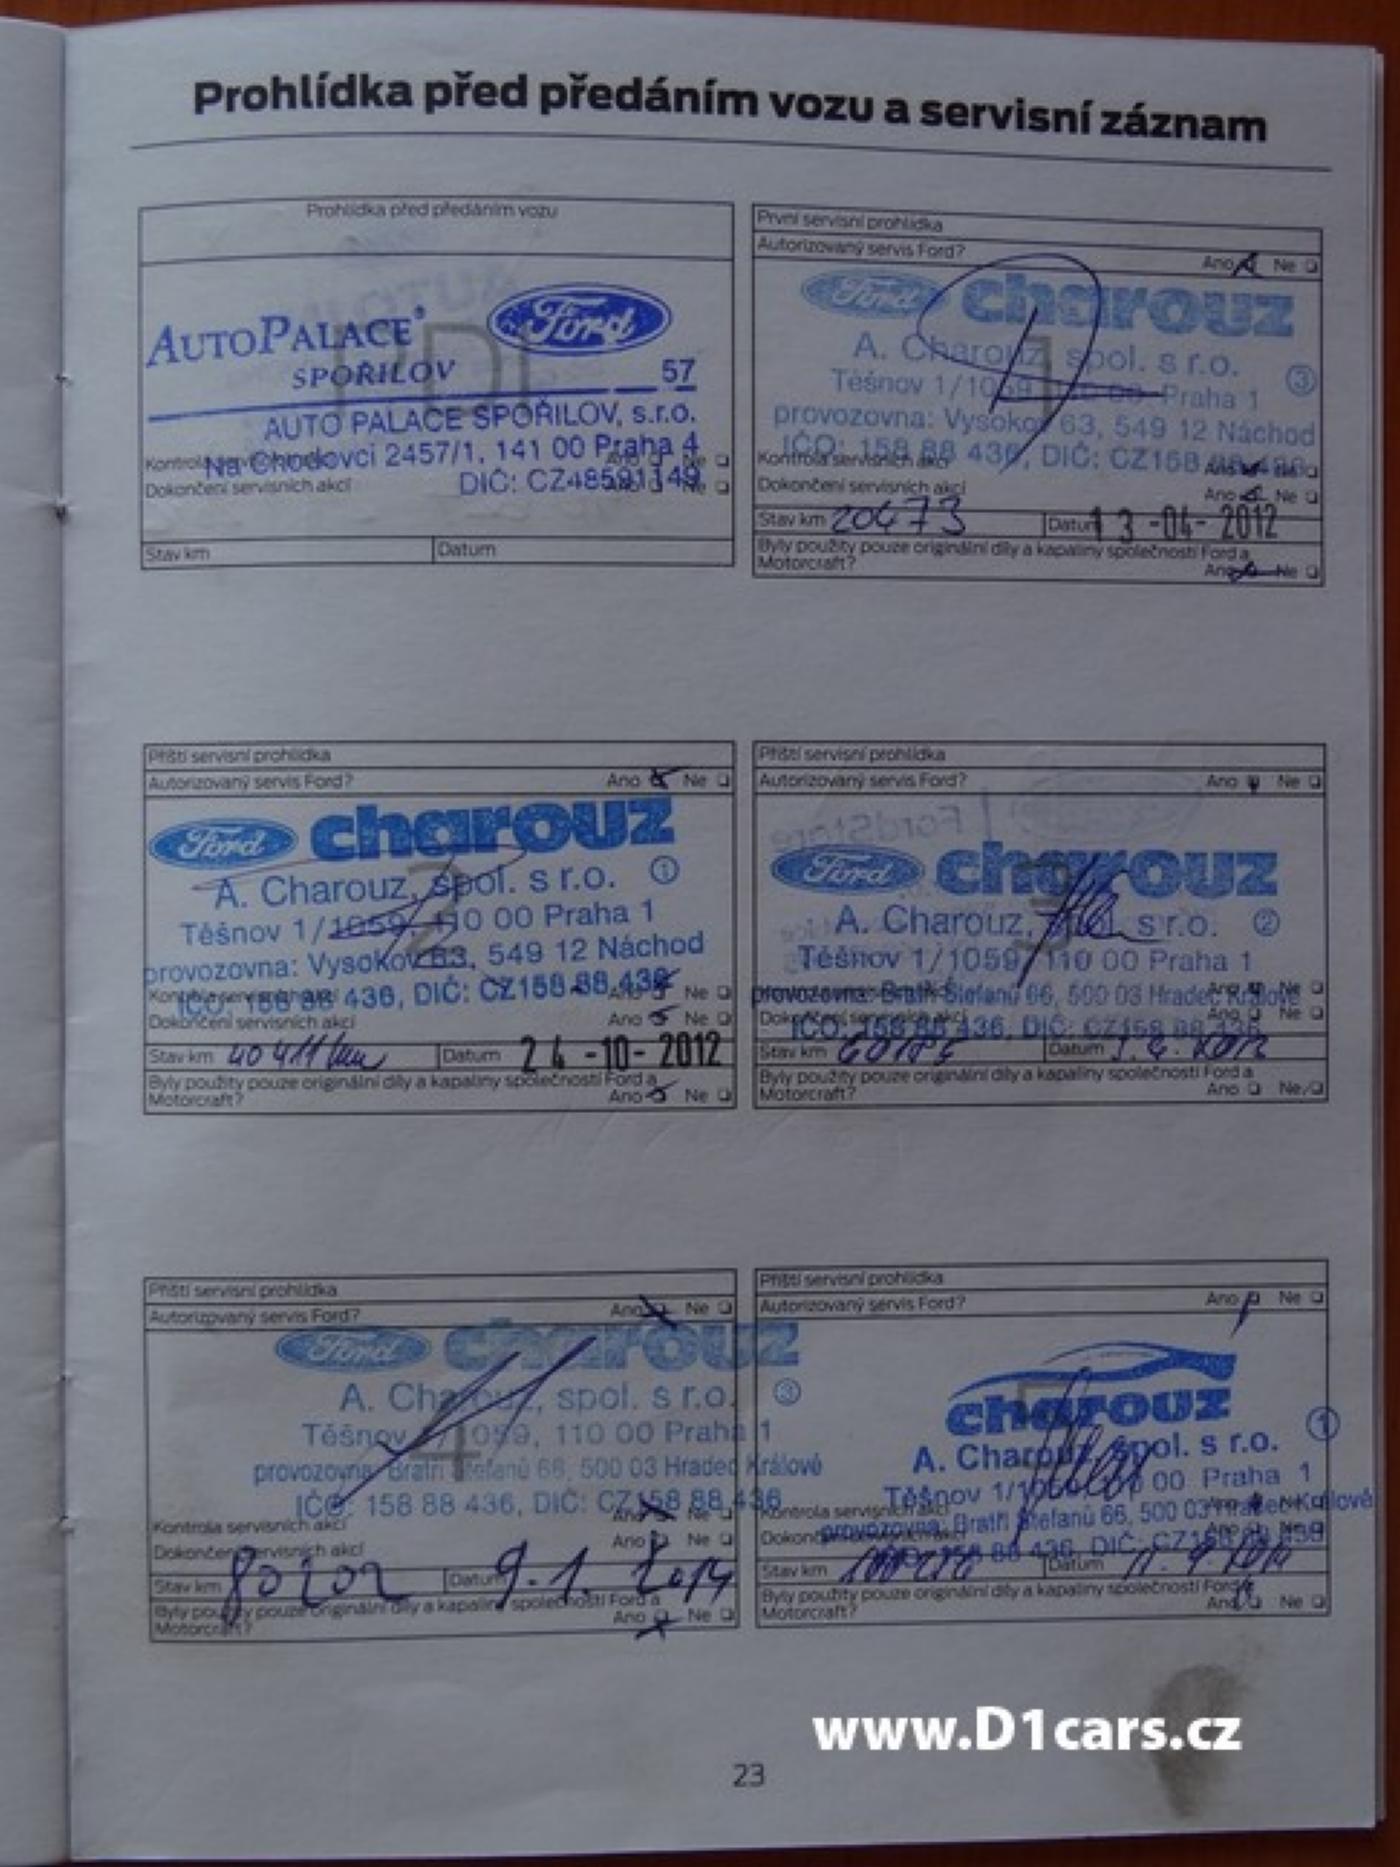 Prohlídka před předáním vozu a servisní záznam
Prohlídka před předáním vozu
AUTOPALACE
SPOŘILOV
Ford
57
AUTO PALACE SPOŘILOV, s.r.o.
Na Chodovci 2457/1, 141 00 Praha 4
DIČ: CZ48591149
PDI
Kontrola servisních akcí Ano Ne
Dokončení servisních akcí Ano Ne
Stav km Datum
První servisní prohlídka
Autorizovaný servis Ford? Ano Ne
Ford charouz
A. Charouz, spol. s r.o.
Těšnov 1/1059, 110 00 Praha 1 3
provozovna: Vysokov 63, 549 12 Náchod
IČO: 158 88 436, DIČ: CZ158 88 436
1
Kontrola servisních akcí Ano Ne
Dokončení servisních akcí Ano Ne
Stav km 20473 Datum 13-04-2012
Byly použity pouze originální díly a kapaliny společnosti Ford a
Motorcraft? Ano Ne
Příští servisní prohlídka
Autorizovaný servis Ford? Ano Ne
Ford charouz
A. Charouz, spol. s r.o. 1
Těšnov 1/1059, 110 00 Praha 1
provozovna: Vysokov 63, 549 12 Náchod
IČO: 158 88 436, DIČ: CZ158 88 436
2
Kontrola servisních akcí Ano Ne
Dokončení servisních akcí Ano Ne
Stav km 40411 km Datum 24-10-2012
Byly použity pouze originální díly a kapaliny společnosti Ford a
Motorcraft? Ano Ne
Příští servisní prohlídka
Autorizovaný servis Ford? Ano Ne
Ford charouz
A. Charouz, spol. s r.o. 2
Těšnov 1/1059, 110 00 Praha 1
provozovna: Bratří Štefanů 66, 500 03 Hradec Králové
IČO: 158 88 436, DIČ: CZ158 88 436
3
Kontrola servisních akcí Ano Ne
Dokončení servisních akcí Ano Ne
Stav km Datum
Byly použity pouze originální díly a kapaliny společnosti Ford a
Motorcraft? Ano Ne
Příští servisní prohlídka
Autorizovaný servis Ford? Ano Ne
Ford charouz
A. Charouz, spol. s r.o. 3
Těšnov 1/1059, 110 00 Praha 1
provozovna: Bratří Štefanů 66, 500 03 Hradec Králové
IČO: 158 88 436, DIČ: CZ158 88 436
4
Kontrola servisních akcí Ano Ne
Dokončení servisních akcí Ano Ne
Stav km 80202 Datum 9.1.2014
Byly použity pouze originální díly a kapaliny společnosti Ford a
Motorcraft? Ano Ne
Příští servisní prohlídka
Autorizovaný servis Ford? Ano Ne
charouz
A. Charouz, spol. s r.o. 1
Těšnov 1/1059, 110 00 Praha 1
provozovna: Bratří Štefanů 66, 500 03 Hradec Králové
IČO: 158 88 436, DIČ: CZ158 88 436
5
Kontrola servisních akcí Ano Ne
Dokončení servisních akcí Ano Ne
Stav km Datum
Byly použity pouze originální díly a kapaliny společnosti Ford a
Motorcraft? Ano Ne
www.D1cars.cz
23